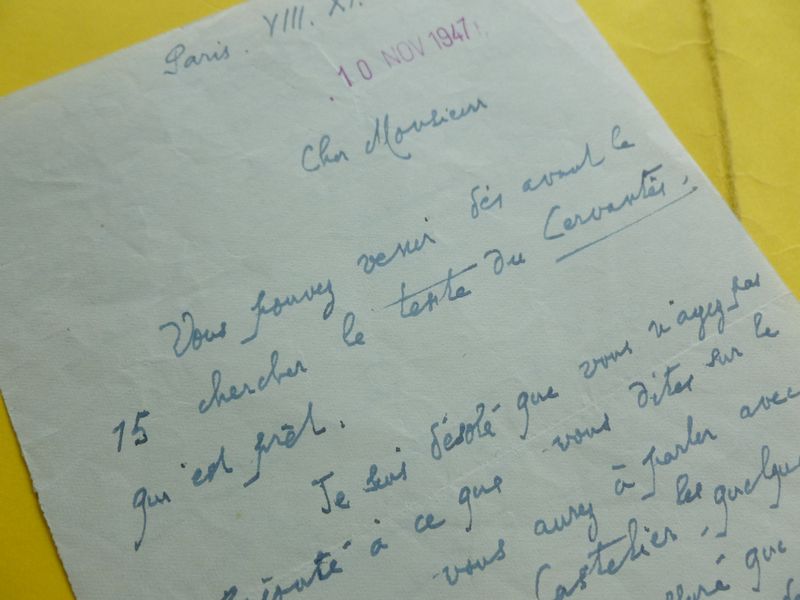 Paris. VIII. XI.
10 NOV 1947
Cher Monsieur
Vous pouvez venir dès avant le
15 chercher le texte du Cervantès,
qui est prêt.
Je suis désolé que vous n'ayez pas
à ce que vous dites sur le
vous aurez à parler avec
Castelier, les quelques
que